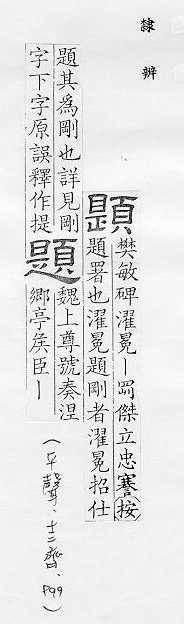 隸辨
題樊敏碑濯冕｜罰傑立忠謇(按)
題署也濯冕題剛者濯冕招仕
題其為剛也詳見剛
字下字原誤釋作提
題魏上尊號奏涅
鄉亭侯臣｜
(平聲.十二齊.P99)